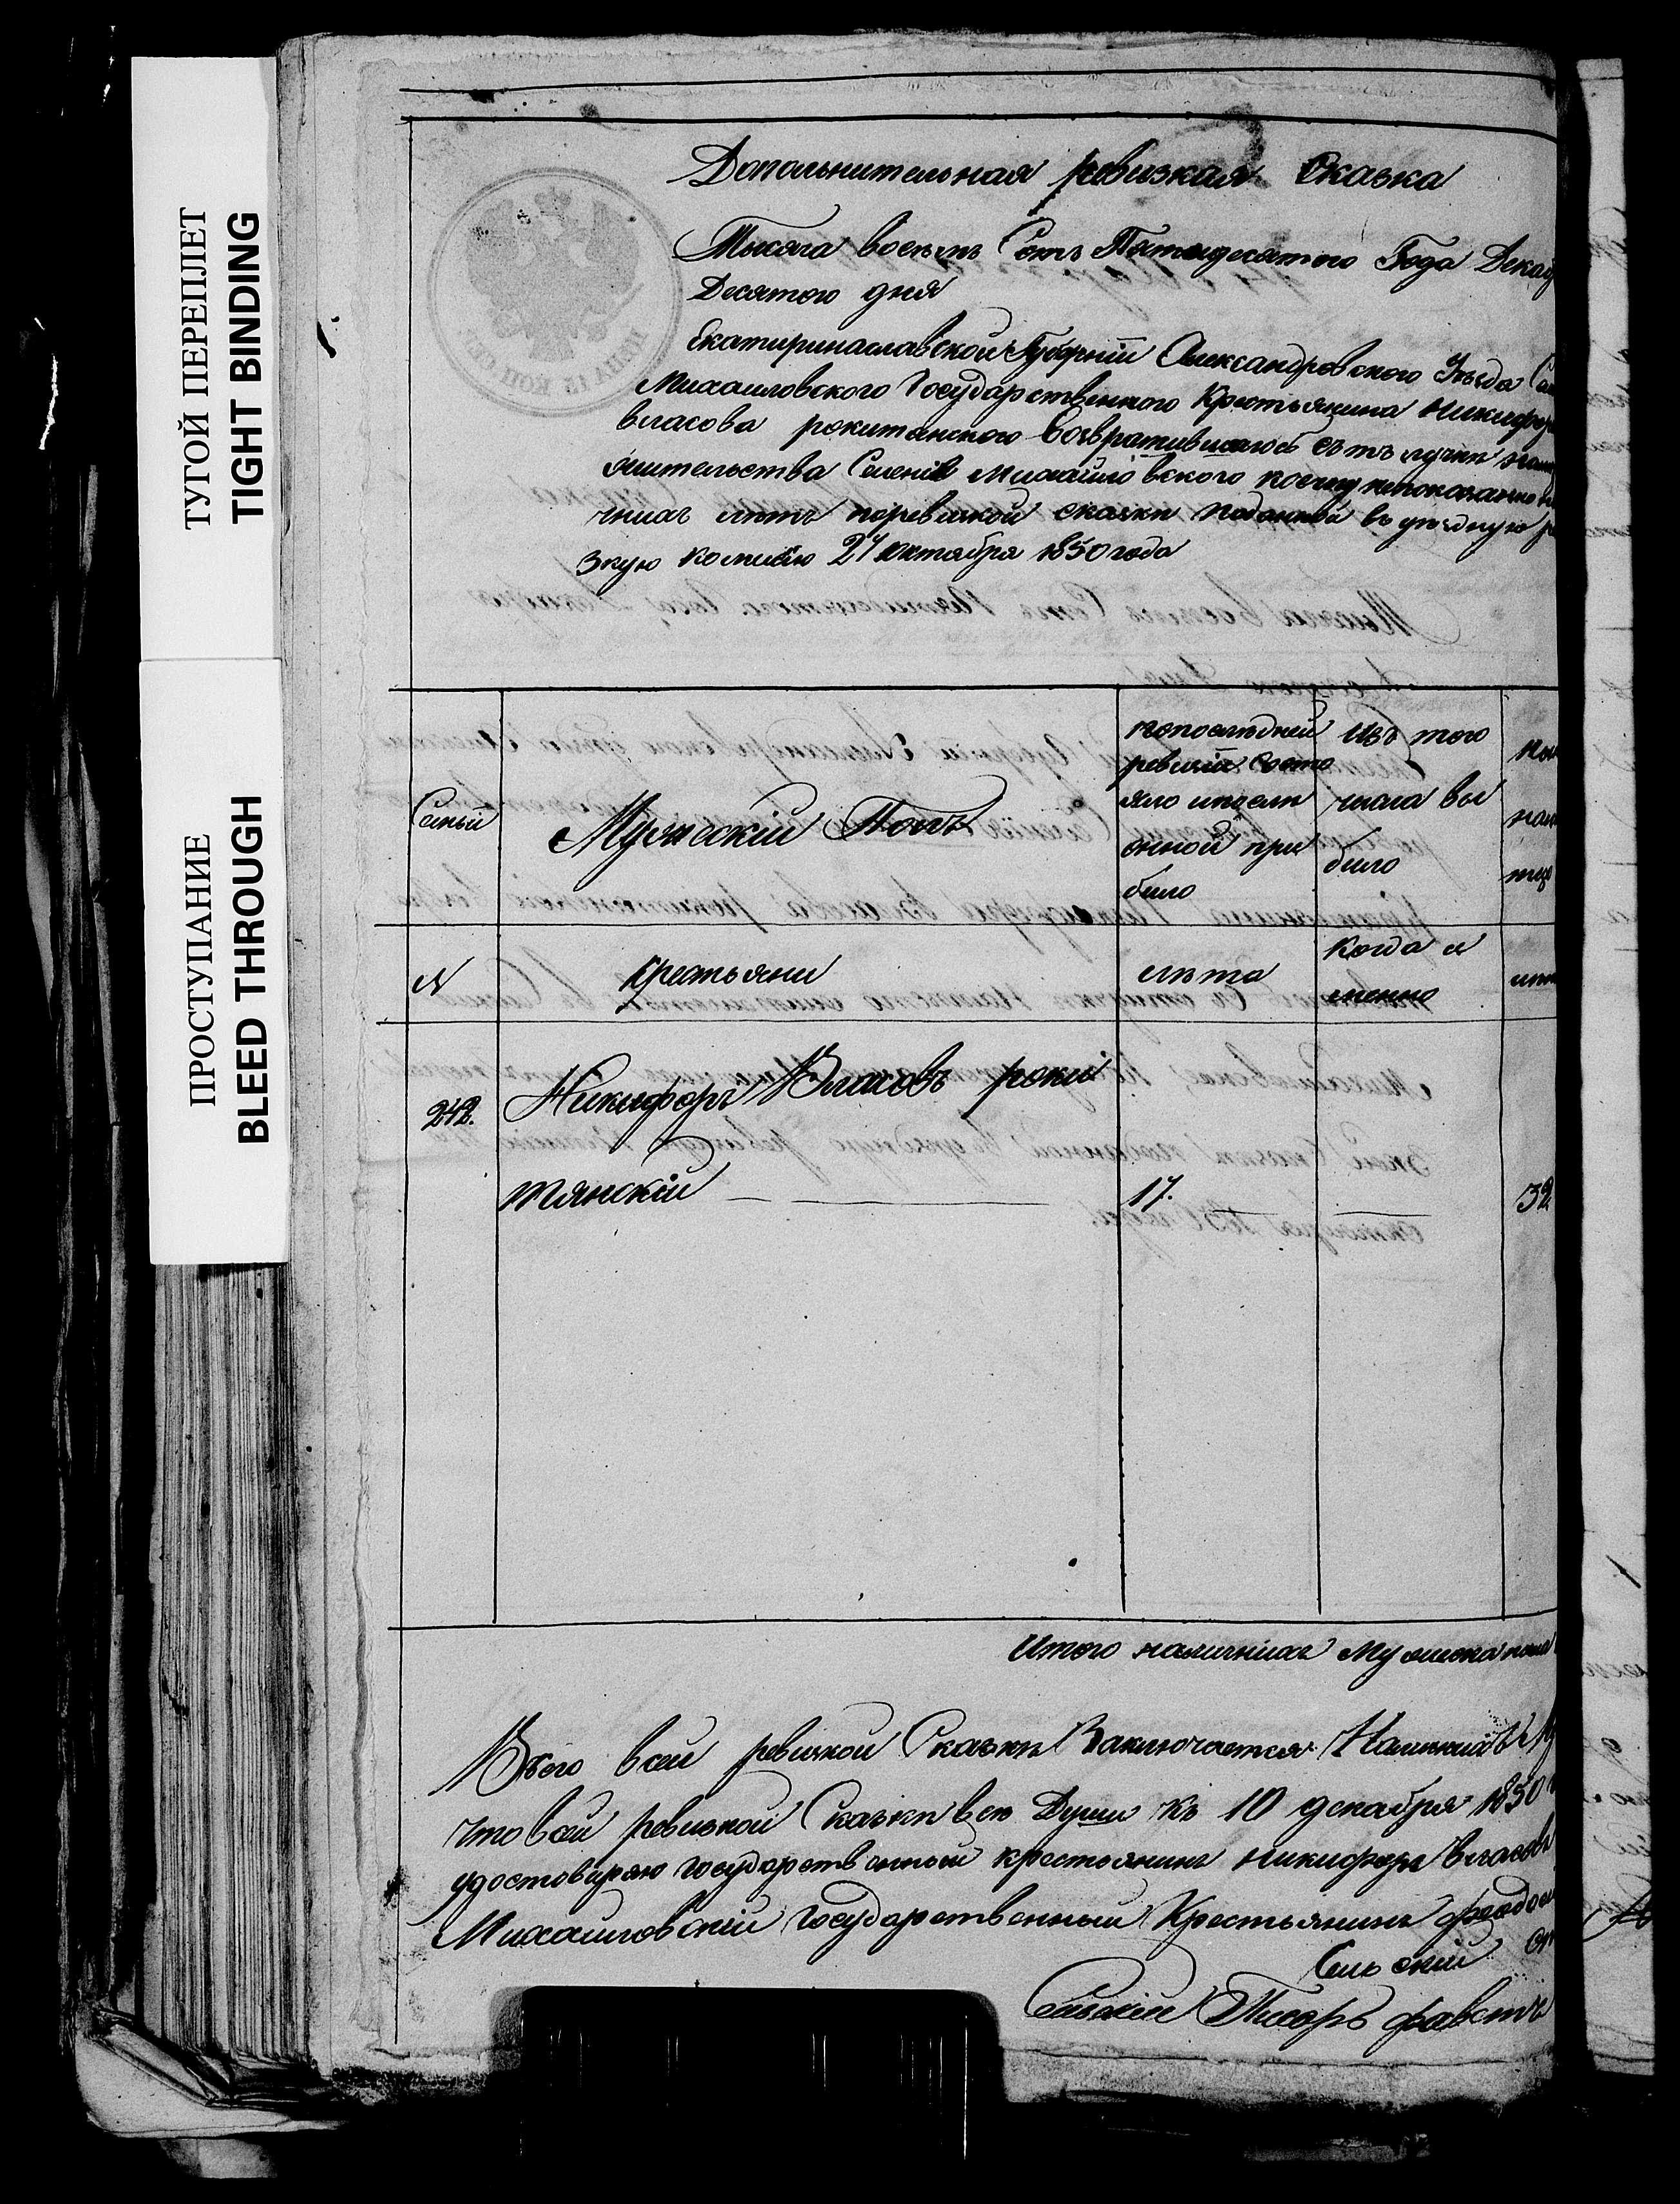 ТУГОЙ ПЕРЕПЛЕТ
TIGHT BINDING
ПРОСТУПАНИЕ
BLEED THROUGH
Допольнительная ревизкая Сказка
Тысяча восемь Сотъ Пятидесятого Года Декаб
Десятого дня
Екатиринаславской Губерніи Александровского Уезда
Михаиловского Государственного Крестьянина Никифора
власова рокитанского Возвратившагося сътлучки
жительства Селеніе Михайловского
летъ поревизкой сказки поданной въ уездную
зкую комисію 27 октября 1850 года
Семьи
Мужескій Полъ
попоследней
ревизіи Состо
яло илпосли
онной при
было
Изъ того
числа вы
было
N
Крестьяни
лета
когда и
менно
242.
Никифоръ Власовъ роки
тянскій
17.
32
Итого наличныхъ Мужеска пола
Всего всей ревизкой Сказки Заключается Наличныхъ
что всей ревизкой Сказки все Души къ 10 декабря 1850
удостоверяю государственный крестьянинъ Никифоръ Власовъ
Михаиловскій Государственный Крестьянинъ
Сельскій
Сельскій Писарь